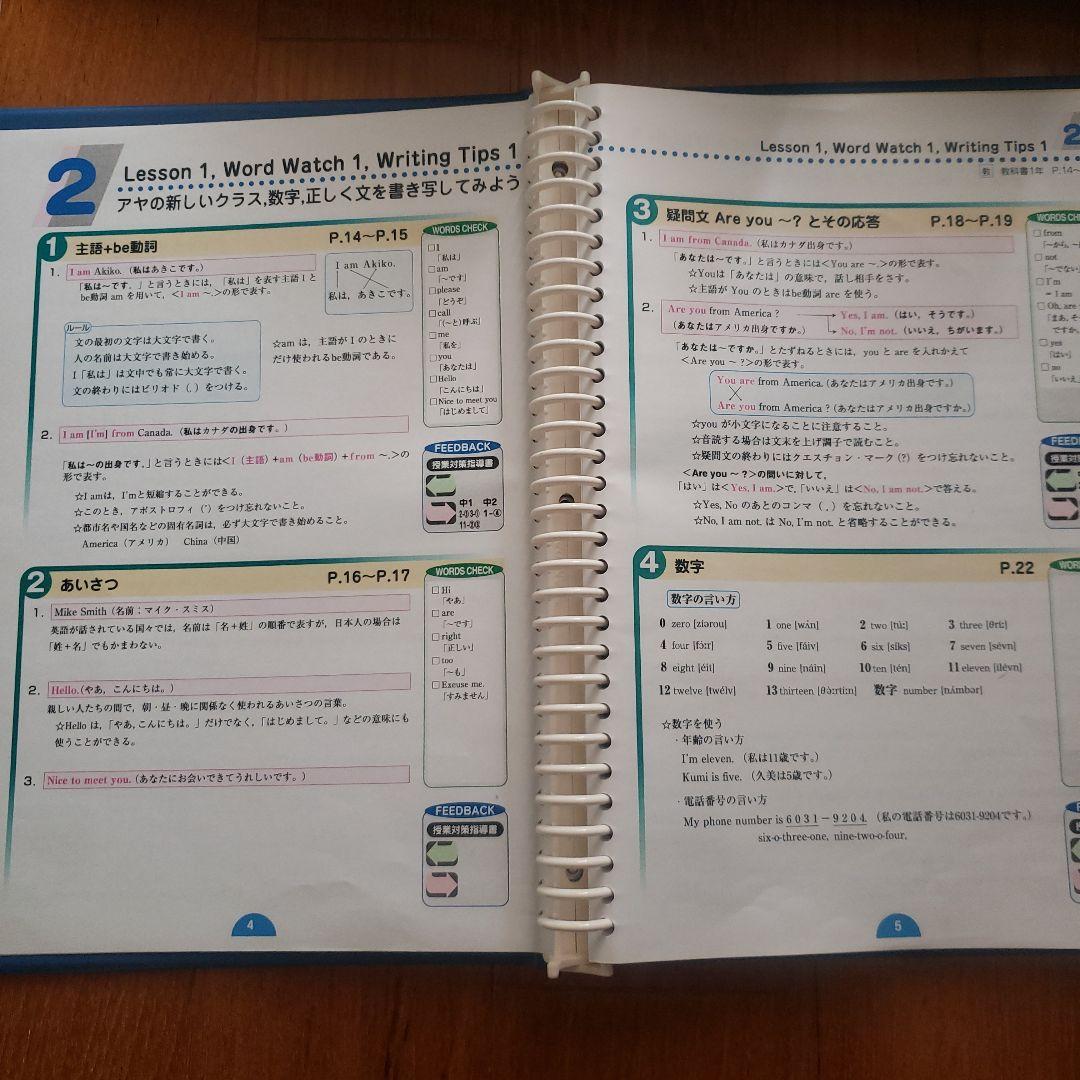 2
Lesson 1, Word Watch 1, Writing Tips 1
アヤの新しいクラス,数字,正しく文を書き写してみよう
1 主語+be動詞 P.14～P.15
1. I am Akiko. (私はあきこです。)
「私は～です。」と言うときには,「私は」を表す主語 I と
be動詞 am を用いて,<I am ～.>の形で表す。
I am Akiko.
私は, あきこです。
ルール
文の最初の文字は大文字で書く。
人の名前は大文字で書き始める。
I「私は」は文中でも常に大文字で書く。
文の終わりにはピリオド (.) をつける。
☆am は, 主語が I のときに
だけ使われるbe動詞である。
2. I am [I'm] from Canada. (私はカナダの出身です。)
「私は～の出身です。」と言うときには<I (主語)+am (be動詞)+from ～.>の
形で表す。
☆I amは, I'mと短縮することができる。
☆このとき, アポストロフィ (') をつけ忘れないこと。
☆都市名や国名などの固有名詞は, 必ず大文字で書き始めること。
America (アメリカ) China (中国)
WORDS CHECK
□I
「私は」
□am
「～です」
□please
「どうぞ」
□call
「(～と)呼ぶ」
□me
「私を」
□you
「あなたは」
□Hello
「こんにちは」
□Nice to meet you
「はじめまして」
FEEDBACK
授業対策指導書
中1 中2
2 あいさつ P.16～P.17
1. Mike Smith (名前：マイク・スミス)
英語が話されている国々では, 名前は「名+姓」の順番で表すが, 日本人の場合は
「姓+名」でもかまわない。
2. Hello. (やあ, こんにちは。)
親しい人たちの間で, 朝・昼・晩に関係なく使われるあいさつの言葉。
☆Hello は,「やあ, こんにちは。」だけでなく,「はじめまして。」などの意味にも
使うことができる。
3. Nice to meet you. (あなたにお会いできてうれしいです。)
WORDS CHECK
□Hi
「やあ」
□are
「～です」
□right
「正しい」
□too
「～も」
□Excuse me.
「すみません」
FEEDBACK
授業対策指導書
4
Lesson 1, Word Watch 1, Writing Tips 1
2
教 教科書1年 P.14～
3 疑問文 Are you ～? とその応答 P.18～P.19
1. I am from Canada. (私はカナダ出身です。)
「あなたは～です。」と言うときには<You are ～.>の形で表す。
☆Youは「あなたは」の意味で, 話し相手をさす。
☆主語が You のときはbe動詞 are を使う。
2. Are you from America ? → Yes, I am. (はい, そうです。)
(あなたはアメリカ出身ですか。) → No, I'm not. (いいえ, ちがいます。)
「あなたは～ですか。」とたずねるときには, you と are を入れかえて
<Are you ～ ?>の形で表す。
You are from America. (あなたはアメリカ出身です。)
Are you from America ? (あなたはアメリカ出身ですか。)
☆you が小文字になることに注意すること。
☆音読する場合は文末を上げ調子で読むこと。
☆疑問文の終わりにはクエスチョン・マーク (?) をつけ忘れないこと。
<Are you ～ ?>の問いに対して,
「はい」は<Yes, I am.>で,「いいえ」は<No, I am not.>で答える。
☆Yes, No のあとのコンマ (,) を忘れないこと。
☆No, I am not. は No, I'm not. と省略することができる。
WORDS CHE
□from
□not
「～でない」
□I'm
= I am
□Oh, are
「まあ, そ
ですか。
□yes
「はい」
□no
「いいえ」
FEED
授業対
4 数字 P.22
数字の言い方
0 zero [zíərou] 1 one [wʌ́n] 2 two [túː] 3 three [θríː]
4 four [fɔ́ːr] 5 five [fáiv] 6 six [síks] 7 seven [sévn]
8 eight [éit] 9 nine [náin] 10 ten [tén] 11 eleven [ilévn]
12 twelve [twélv] 13 thirteen [θə̀ːrtíːn] 数字 number [nʌ́mbər]
☆数字を使う
・年齢の言い方
I'm eleven. (私は11歳です。)
Kumi is five. (久美は5歳です。)
・電話番号の言い方
My phone number is 6031－9204. (私の電話番号は6031-9204です。)
six-o-three-one, nine-two-o-four.
WORD
5